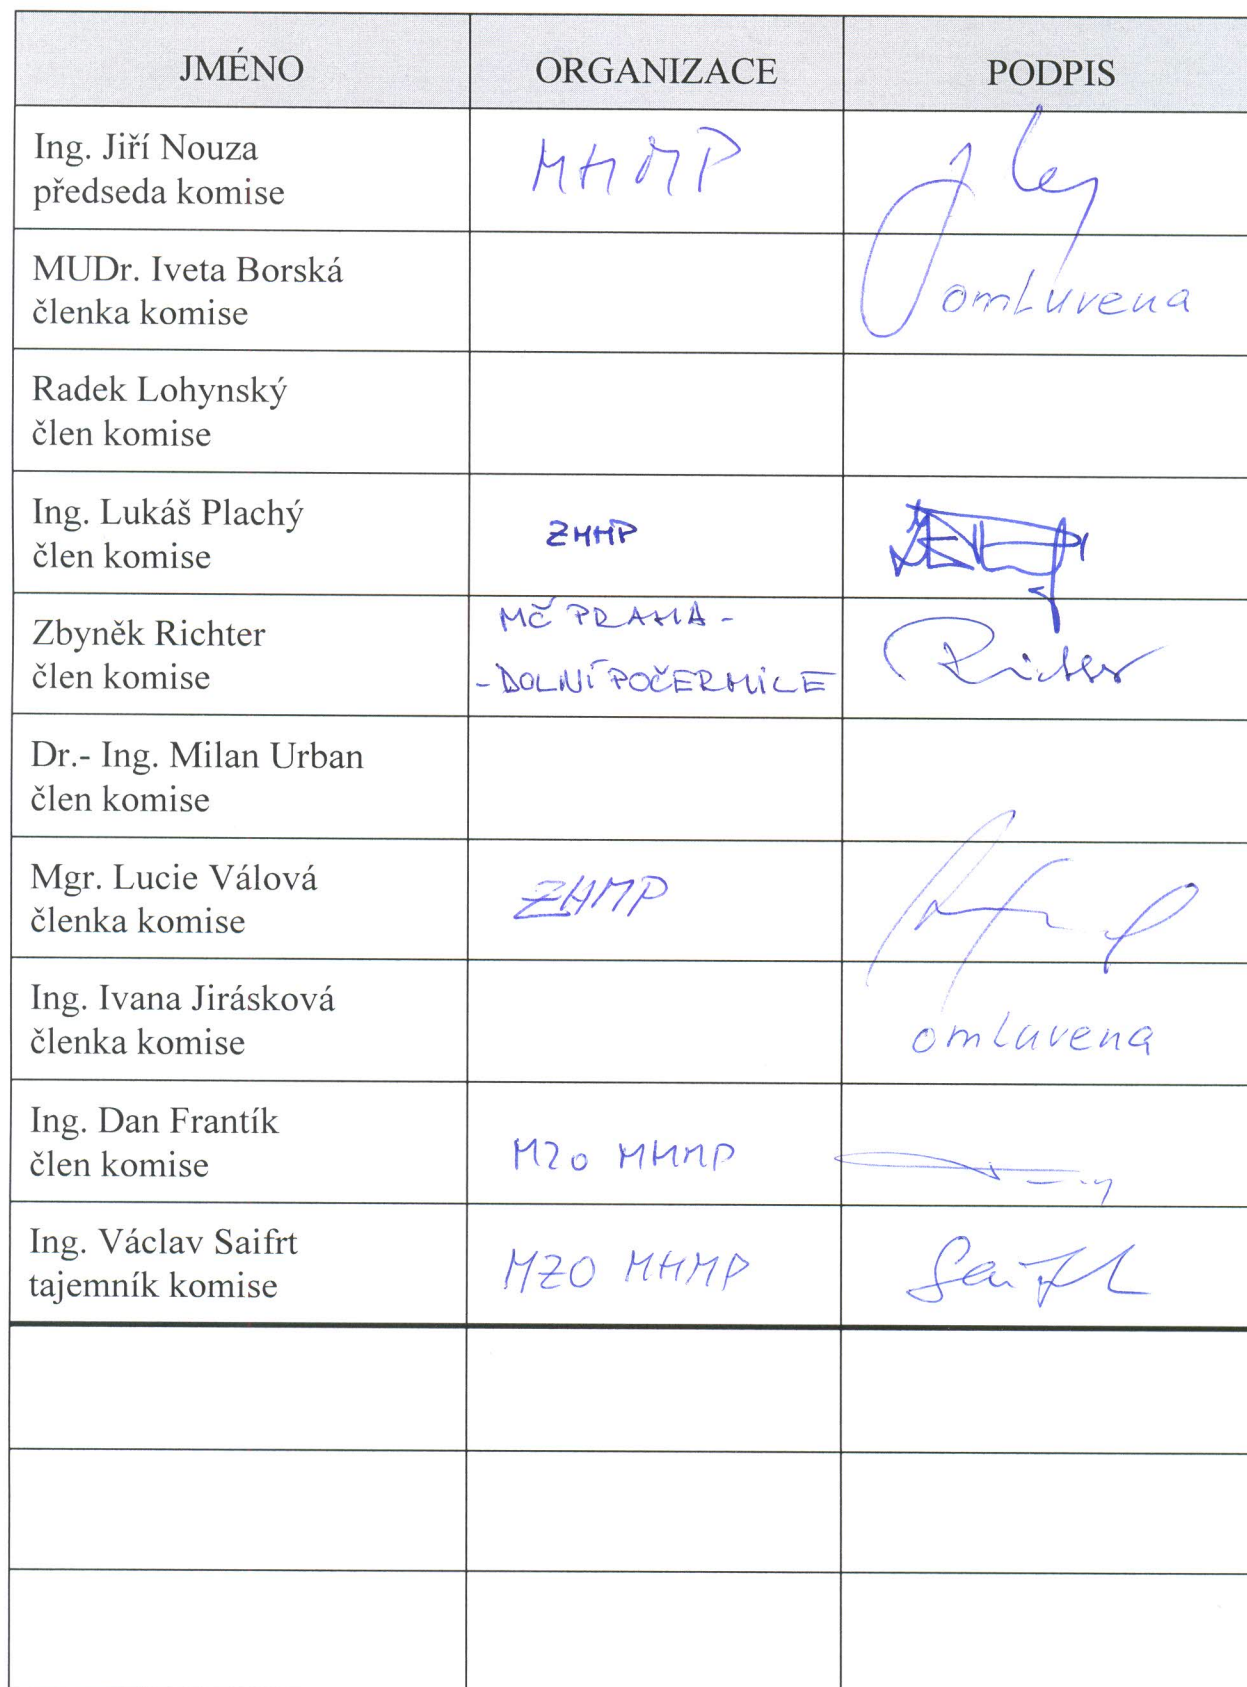 JMÉNO ORGANIZACE PODPIS
Ing. Jiří Nouza
předseda komise
MHMP
MUDr. Iveta Borská
členka komise
omluvena
Radek Lohynský
člen komise
Ing. Lukáš Plachý
člen komise
ZHMP
Zbyněk Richter
člen komise
MČ PRAHA -
- DOLNÍ POČERNICE
Richter
Dr.- Ing. Milan Urban
člen komise
Mgr. Lucie Válová
členka komise
ZHMP
Ing. Ivana Jirásková
členka komise
omluvena
Ing. Dan Frantík
člen komise
MZO MHMP
Ing. Václav Saifrt
tajemník komise
MZO MHMP
Saifrt